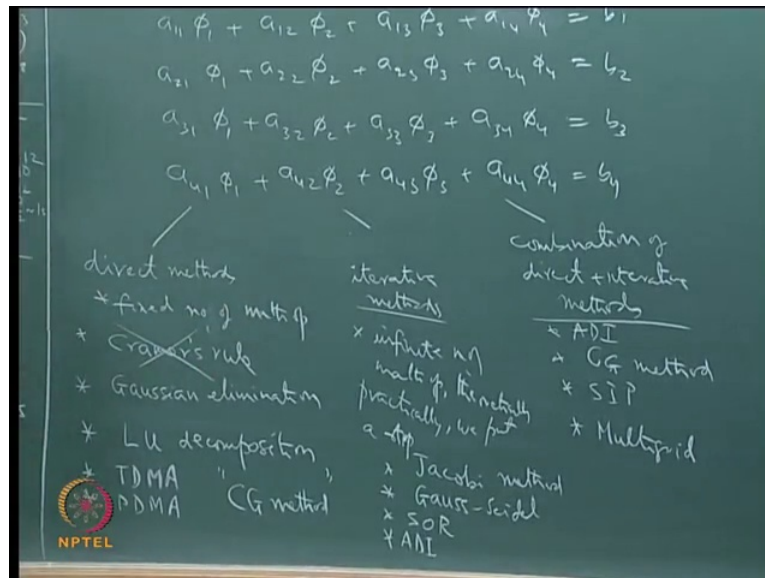 a₁₁ φ₁ + a₁₂ φ₂ + a₁₃ φ₃ + a₁₄ φ₄ = b₁
a₂₁ φ₁ + a₂₂ φ₂ + a₂₃ φ₃ + a₂₄ φ₄ = b₂
a₃₁ φ₁ + a₃₂ φ₂ + a₃₃ φ₃ + a₃₄ φ₄ = b₃
a₄₁ φ₁ + a₄₂ φ₂ + a₄₃ φ₃ + a₄₄ φ₄ = b₄
direct methods
* fixed no of math op
* Cramer's rule
* Gaussian elimination
* LU decomposition
* TDMA " "
PDMA CG method
iterative
methods
* infinite no of
math op, theoretically
practically, we put
a stop
* Jacobi method
* Gauss-Seidel
* SOR
* ADI
combination of
direct + iterative
methods
* ADI
* CG method
* SIP
* Multigrid
NPTEL